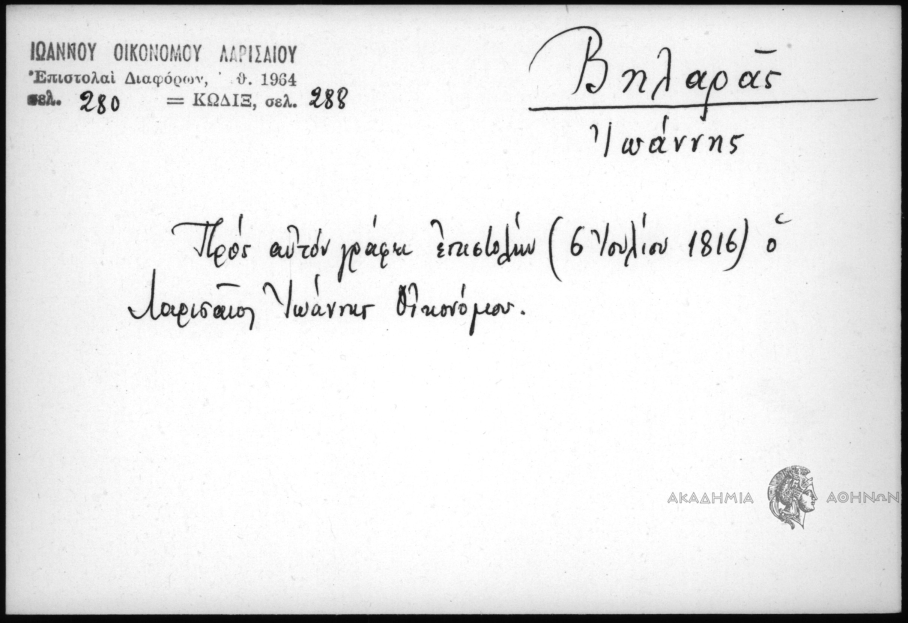 ΙΩΑΝΝΟΥ ΟΙΚΟΝΟΜΟΥ ΛΑΡΙΣΑΙΟΥ
Ἐπιστολαὶ Διαφόρων, θ. 1964
σελ. 280 = ΚΩΔΙΞ, σελ. 288
Βηλαρᾶς
Ἰωάννης
Πρὸς αὐτὸν γράφει ἐπιστολὴν (6 Ἰουλίου 1816) ὁ
Λαρισαῖος Ἰωάννης Οἰκονόμου.
ΑΚΑΔΗΜΙΑ ΑΘΗΝΩΝ